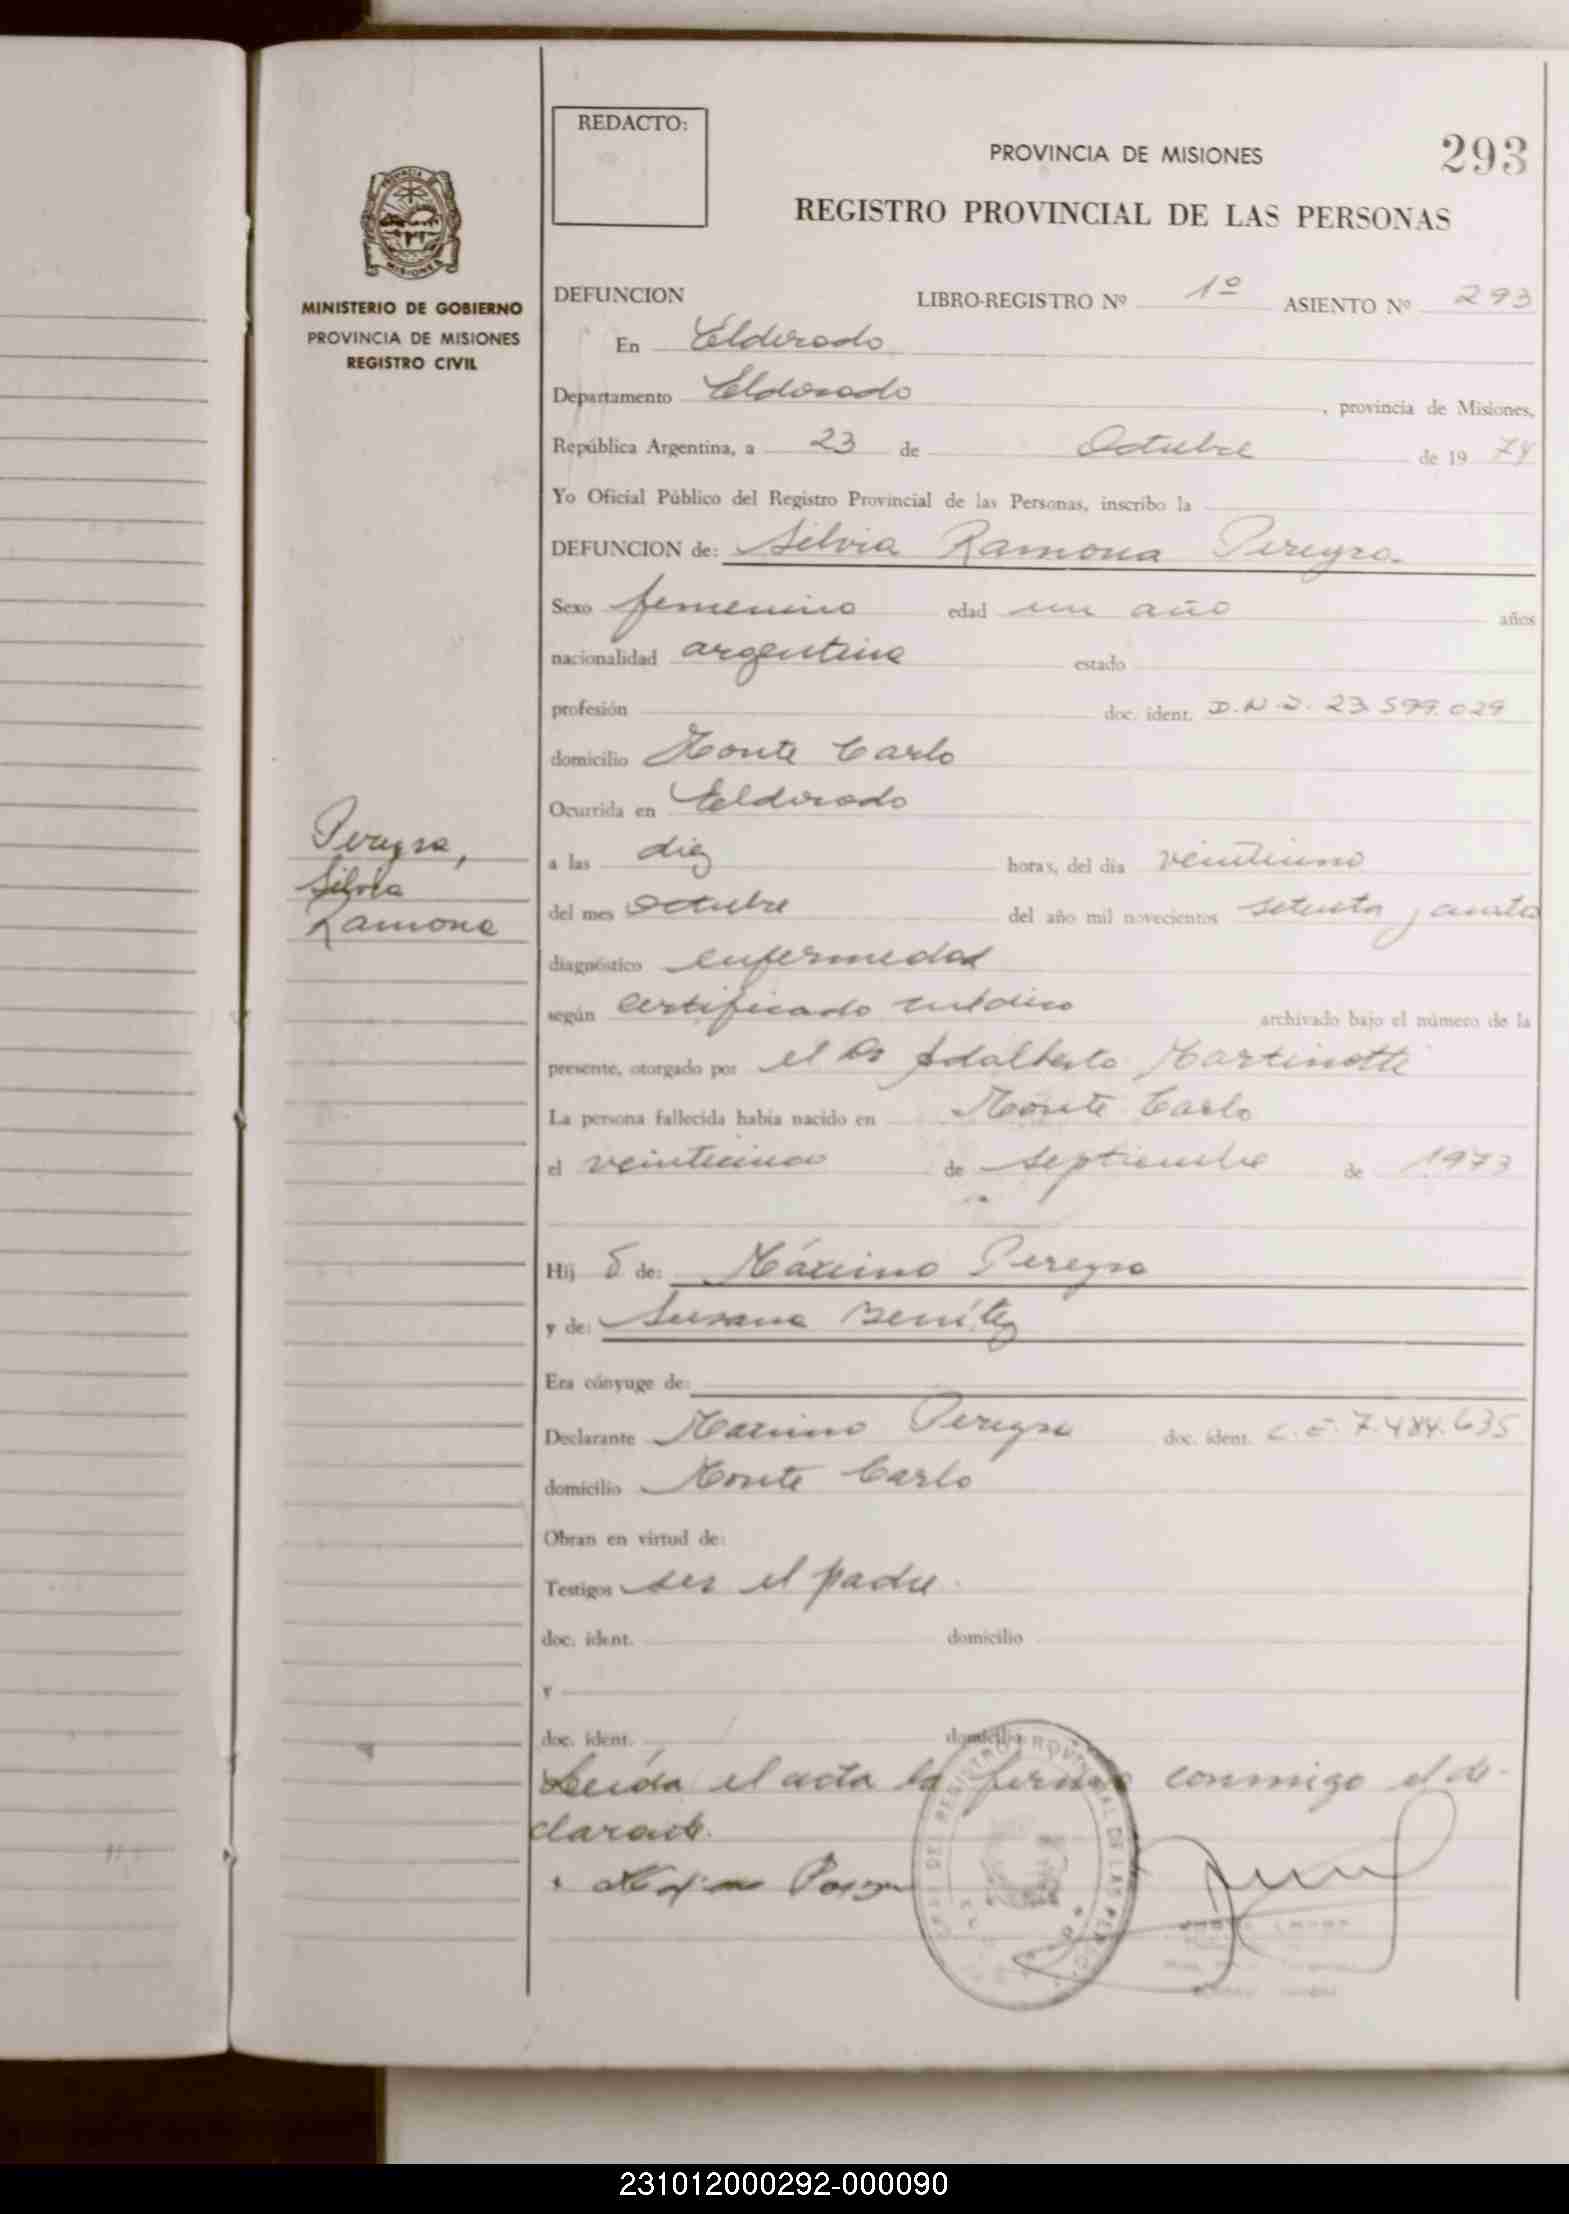 REDACTO:
PROVINCIA DE MISIONES
293
REGISTRO PROVINCIAL DE LAS PERSONAS
MINISTERIO DE GOBIERNO
PROVINCIA DE MISIONES
REGISTRO CIVIL
DEFUNCION LIBRO-REGISTRO Nº 1º ASIENTO Nº 293
En Eldorado
Departamento Eldorado , provincia de Misiones,
República Argentina, a 23 de Octubre de 19 74
Yo Oficial Público del Registro Provincial de las Personas, inscribo la
DEFUNCION de: Silvia Ramona Pereyra
Sexo femenino edad un año años
nacionalidad argentina estado
profesión doc. ident. D.N.I. 23.599.029
domicilio Monte Carlo
Ocurrida en Eldorado
Pereyra,
Silvia
Ramona
a las diez horas, del día veintiuno
del mes Octubre del año mil novecientos setenta y cuatro
diagnóstico enfermedad
según certificado médico archivado bajo el número de la
presente, otorgado por el Dr Adalberto Martinotti
La persona fallecida había nacido en Monte Carlo
el veinticinco de septiembre de 1973
Hij de: Máximo Pereyra
y de: Susana Benítez
Era cónyuge de:
Declarante Maximo Pereyra doc. ident. C.I. 7.484.635
domicilio Monte Carlo
Obran en virtud de:
Testigos ser el padre.
doc. ident. domicilio
y
doc. ident. domicilio
Leída el acta la firma conmigo el de-
clarante.
231012000292-000090